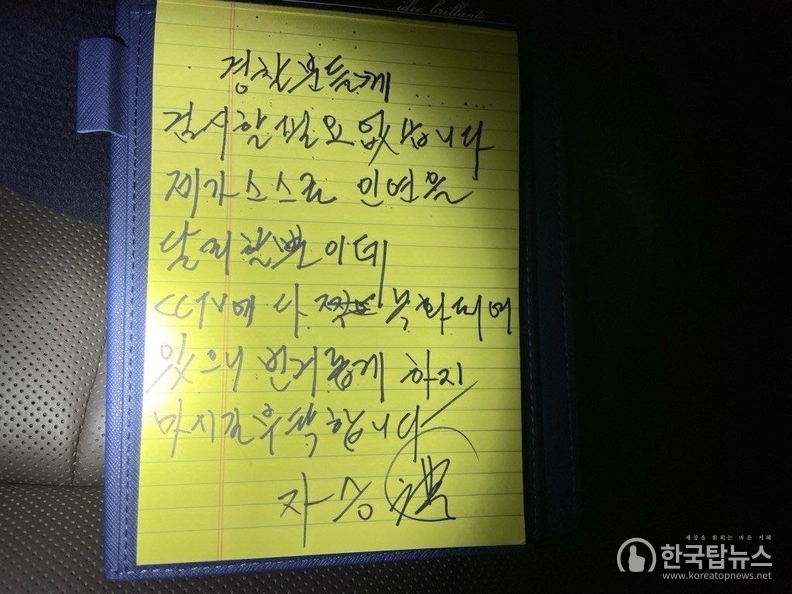 idee brillante
경찰분들께
검시할 필요 없습니다
제가 스스로 인연을
달리할 뿐이데
CCTV에 다 녹화되어
있으니 번거롭게 하지
마시길 부탁합니다
자승
세상을 밝히는 바른 지혜
한국탑뉴스
www.koreatopnews.net